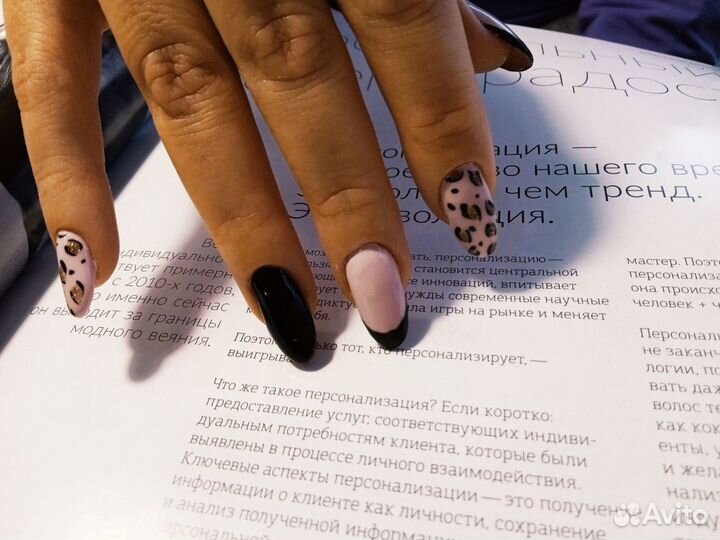 льный
радос
ация —
во нашего вре
чем тренд.
ция.
индивидуально
ствует примерно
с 2010-х годов,
именно сейчас
он выходит за границы
модного веяния.
ать, персонализацию —
становится центральной
все инноваций, впитывает
нужды современные научные
ла игры на рынке и меняет
бя.
Поэтом ко тот, кто персонализирует, —
выигрыва
Что же такое персонализация? Если коротко:
предоставление услуг, соответствующих индиви-
дуальным потребностям клиента, которые были
выявлены в процессе личного взаимодействия.
Ключевые аспекты персонализации — это получение
информации о клиенте как личности, сохранение
и анализ полученной информаци
рсональной
мастер. Поэто
персонализа
она происхо
человек +
Персонали
не заканч
логии, по
вать даж
волос те
как кок
енты, у
и жела
нализ
Avito